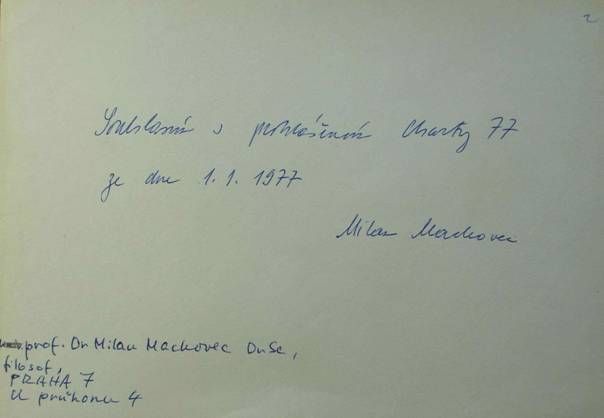 2
Souhlasím s prohlášením Charty 77
ze dne 1. 1. 1977
Milan Machovec
prof. Dr Milan Machovec DrSc,
filosof,
PRAHA 7
U průhonu 4